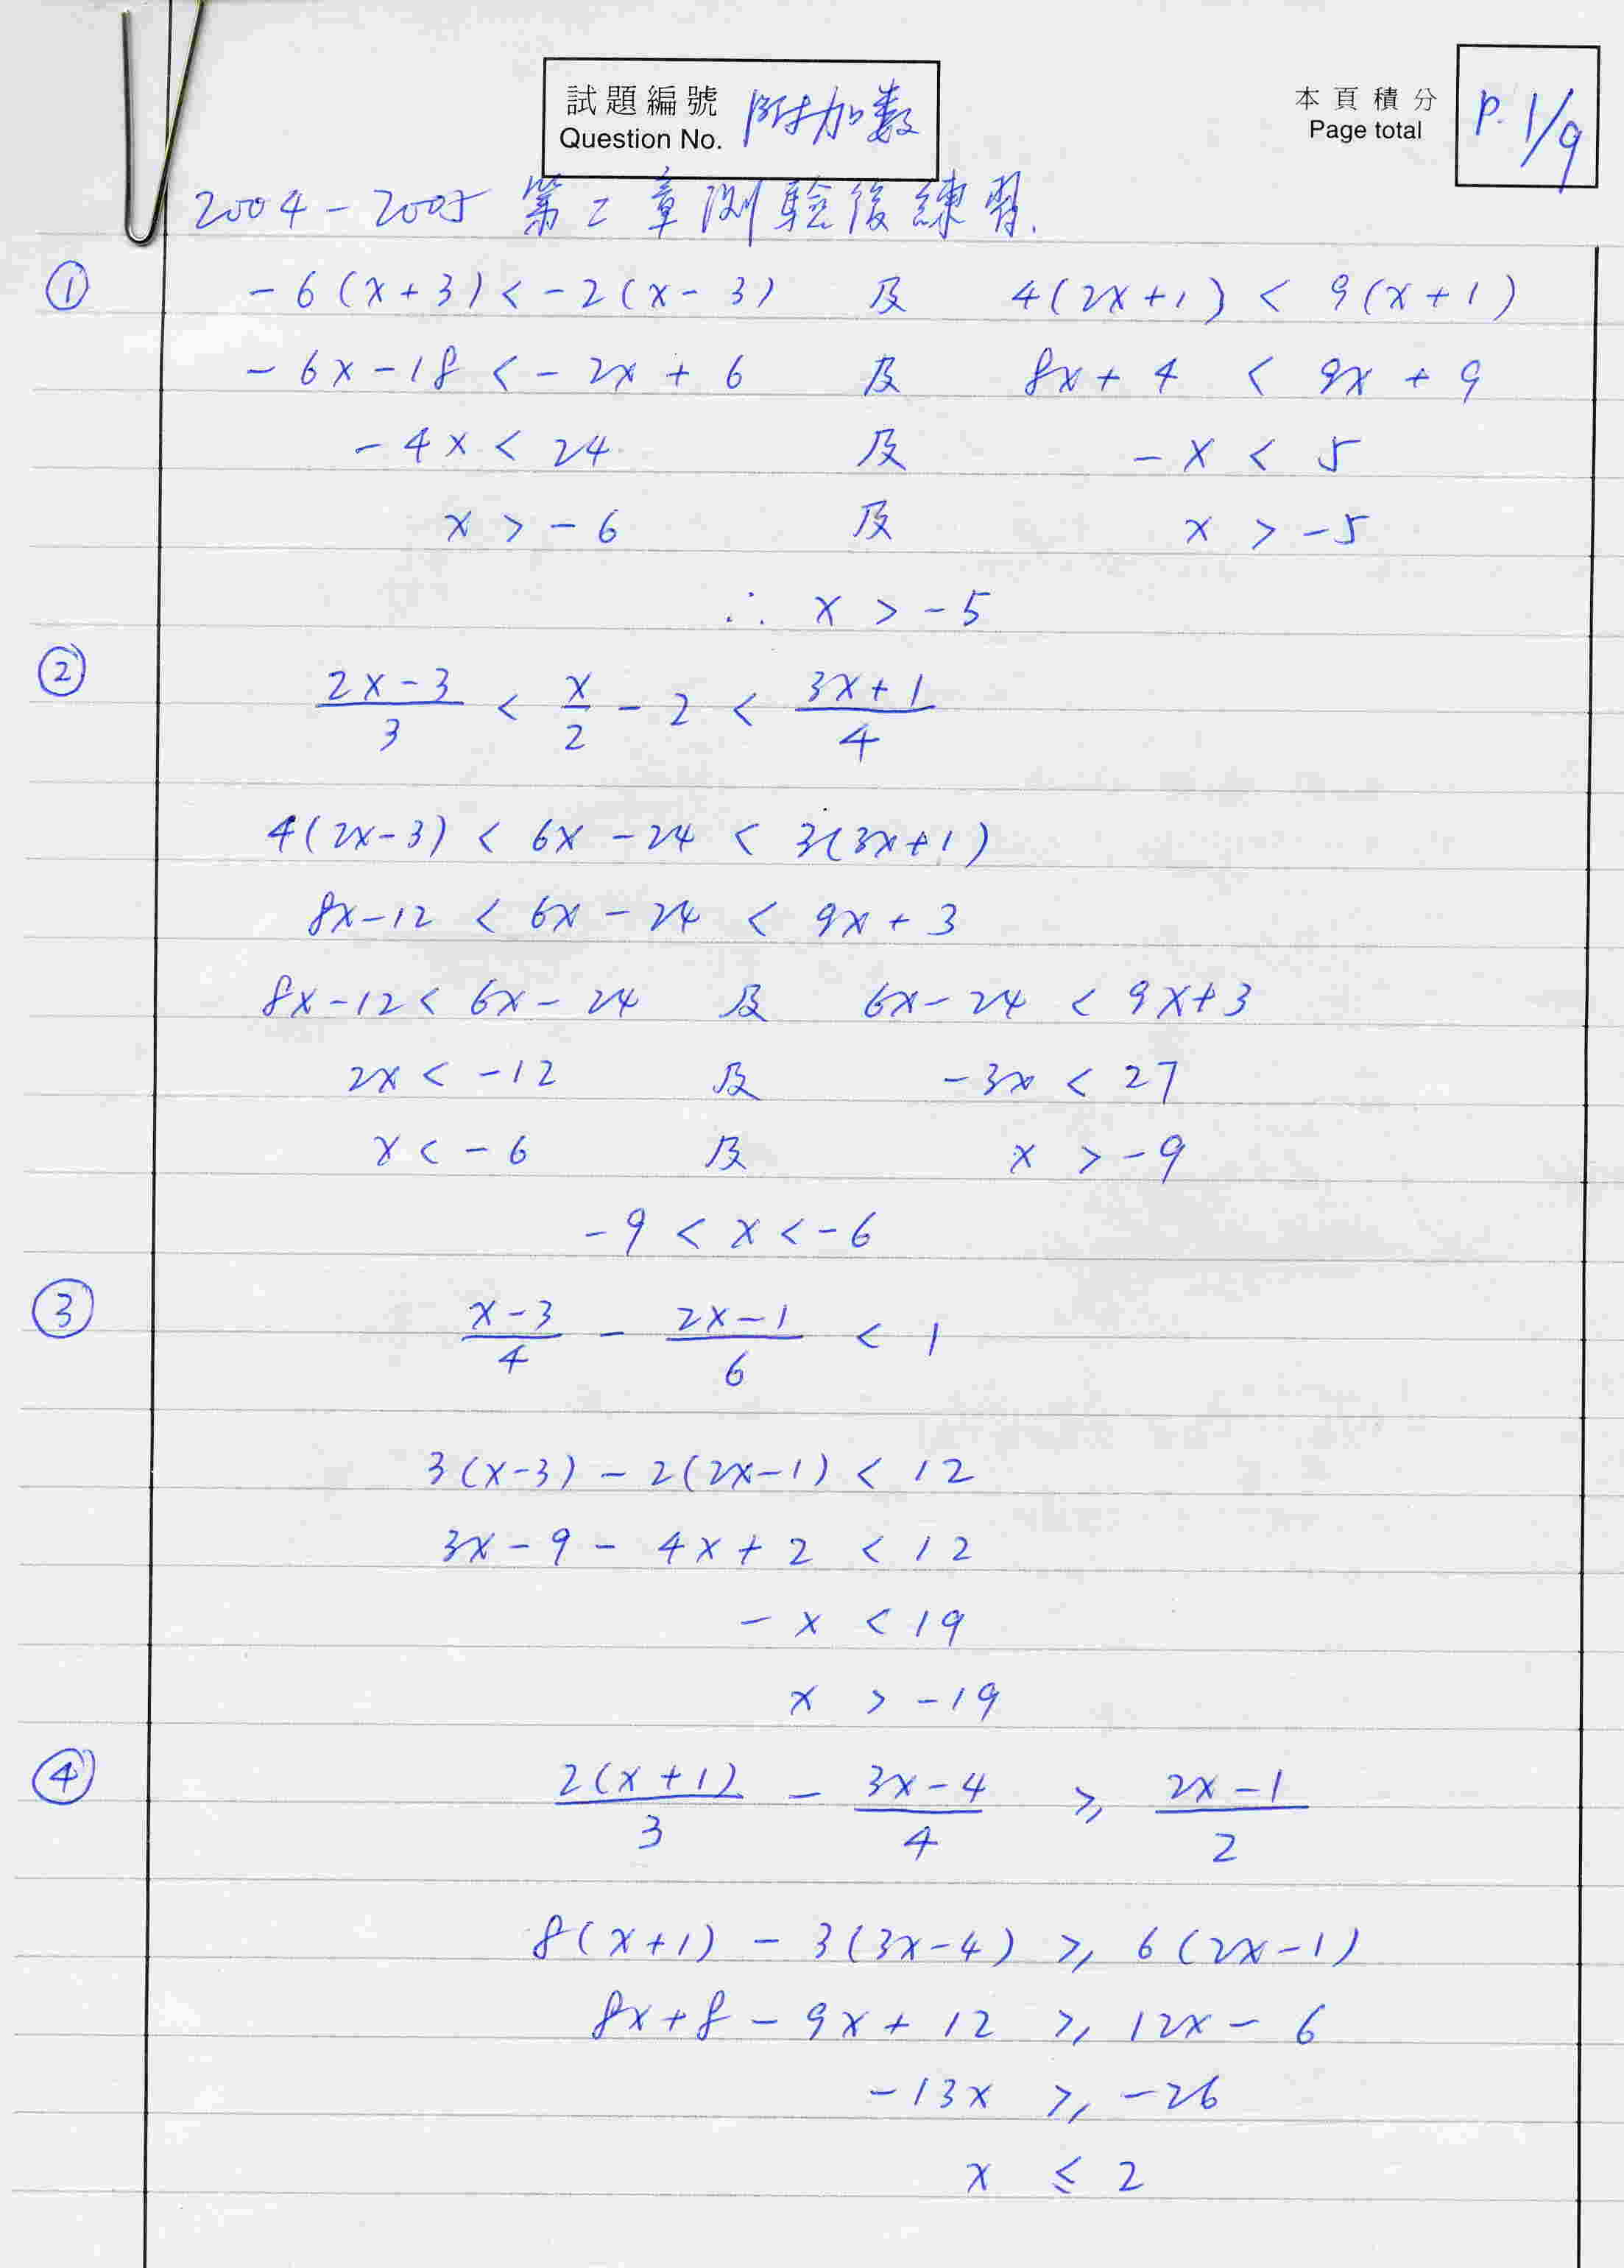 試題編號 附加数 本頁積分 P. 1/9
Question No. Page total
2004-2005 第二章測驗後練習.
① -6(x+3) < -2(x-3) 及 4(2x+1) < 9(x+1)
-6x-18 < -2x+6 及 8x+4 < 9x+9
-4x < 24 及 -x < 5
x > -6 及 x > -5
∴ x > -5
② (2x-3)/3 < x/2 - 2 < (3x+1)/4
4(2x-3) < 6x-24 < 3(3x+1)
8x-12 < 6x-24 < 9x+3
8x-12 < 6x-24 及 6x-24 < 9x+3
2x < -12 及 -3x < 27
x < -6 及 x > -9
-9 < x < -6
③ (x-3)/4 - (2x-1)/6 < 1
3(x-3) - 2(2x-1) < 12
3x-9-4x+2 < 12
-x < 19
x > -19
④ 2(x+1)/3 - (3x-4)/4 ≥ (2x-1)/2
8(x+1) - 3(3x-4) ≥ 6(2x-1)
8x+8-9x+12 ≥ 12x-6
-13x ≥ -26
x ≤ 2